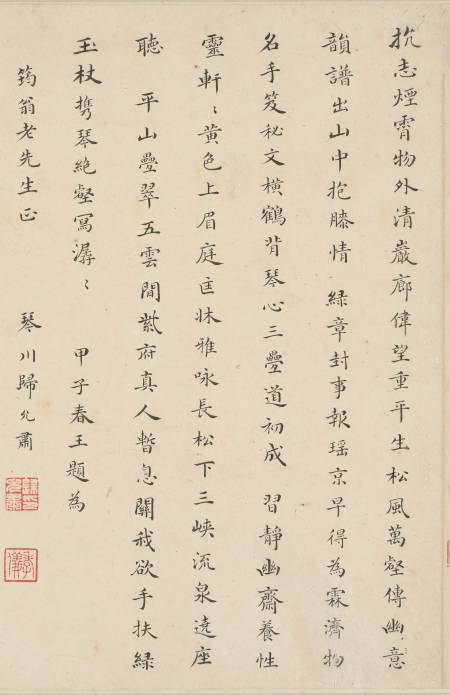 抗志煙霄物外清巖廊偉望重平生松風萬壑傳幽意
韻譜出山中抱膝情 綠章封事報瑤京早得為霖濟物
名手笈秘文橫鶴背琴心三疊道初成 習靜幽齋養性
靈軒〻黃色上眉庭匡牀雅咏長松下三峽流泉遶座
聽 平山疊翠五雲間紫府真人暫息關我欲手扶綠
玉杖携琴絕壑寫潺〻 甲子春王題為
筠翁老先生正 琴川歸允肅